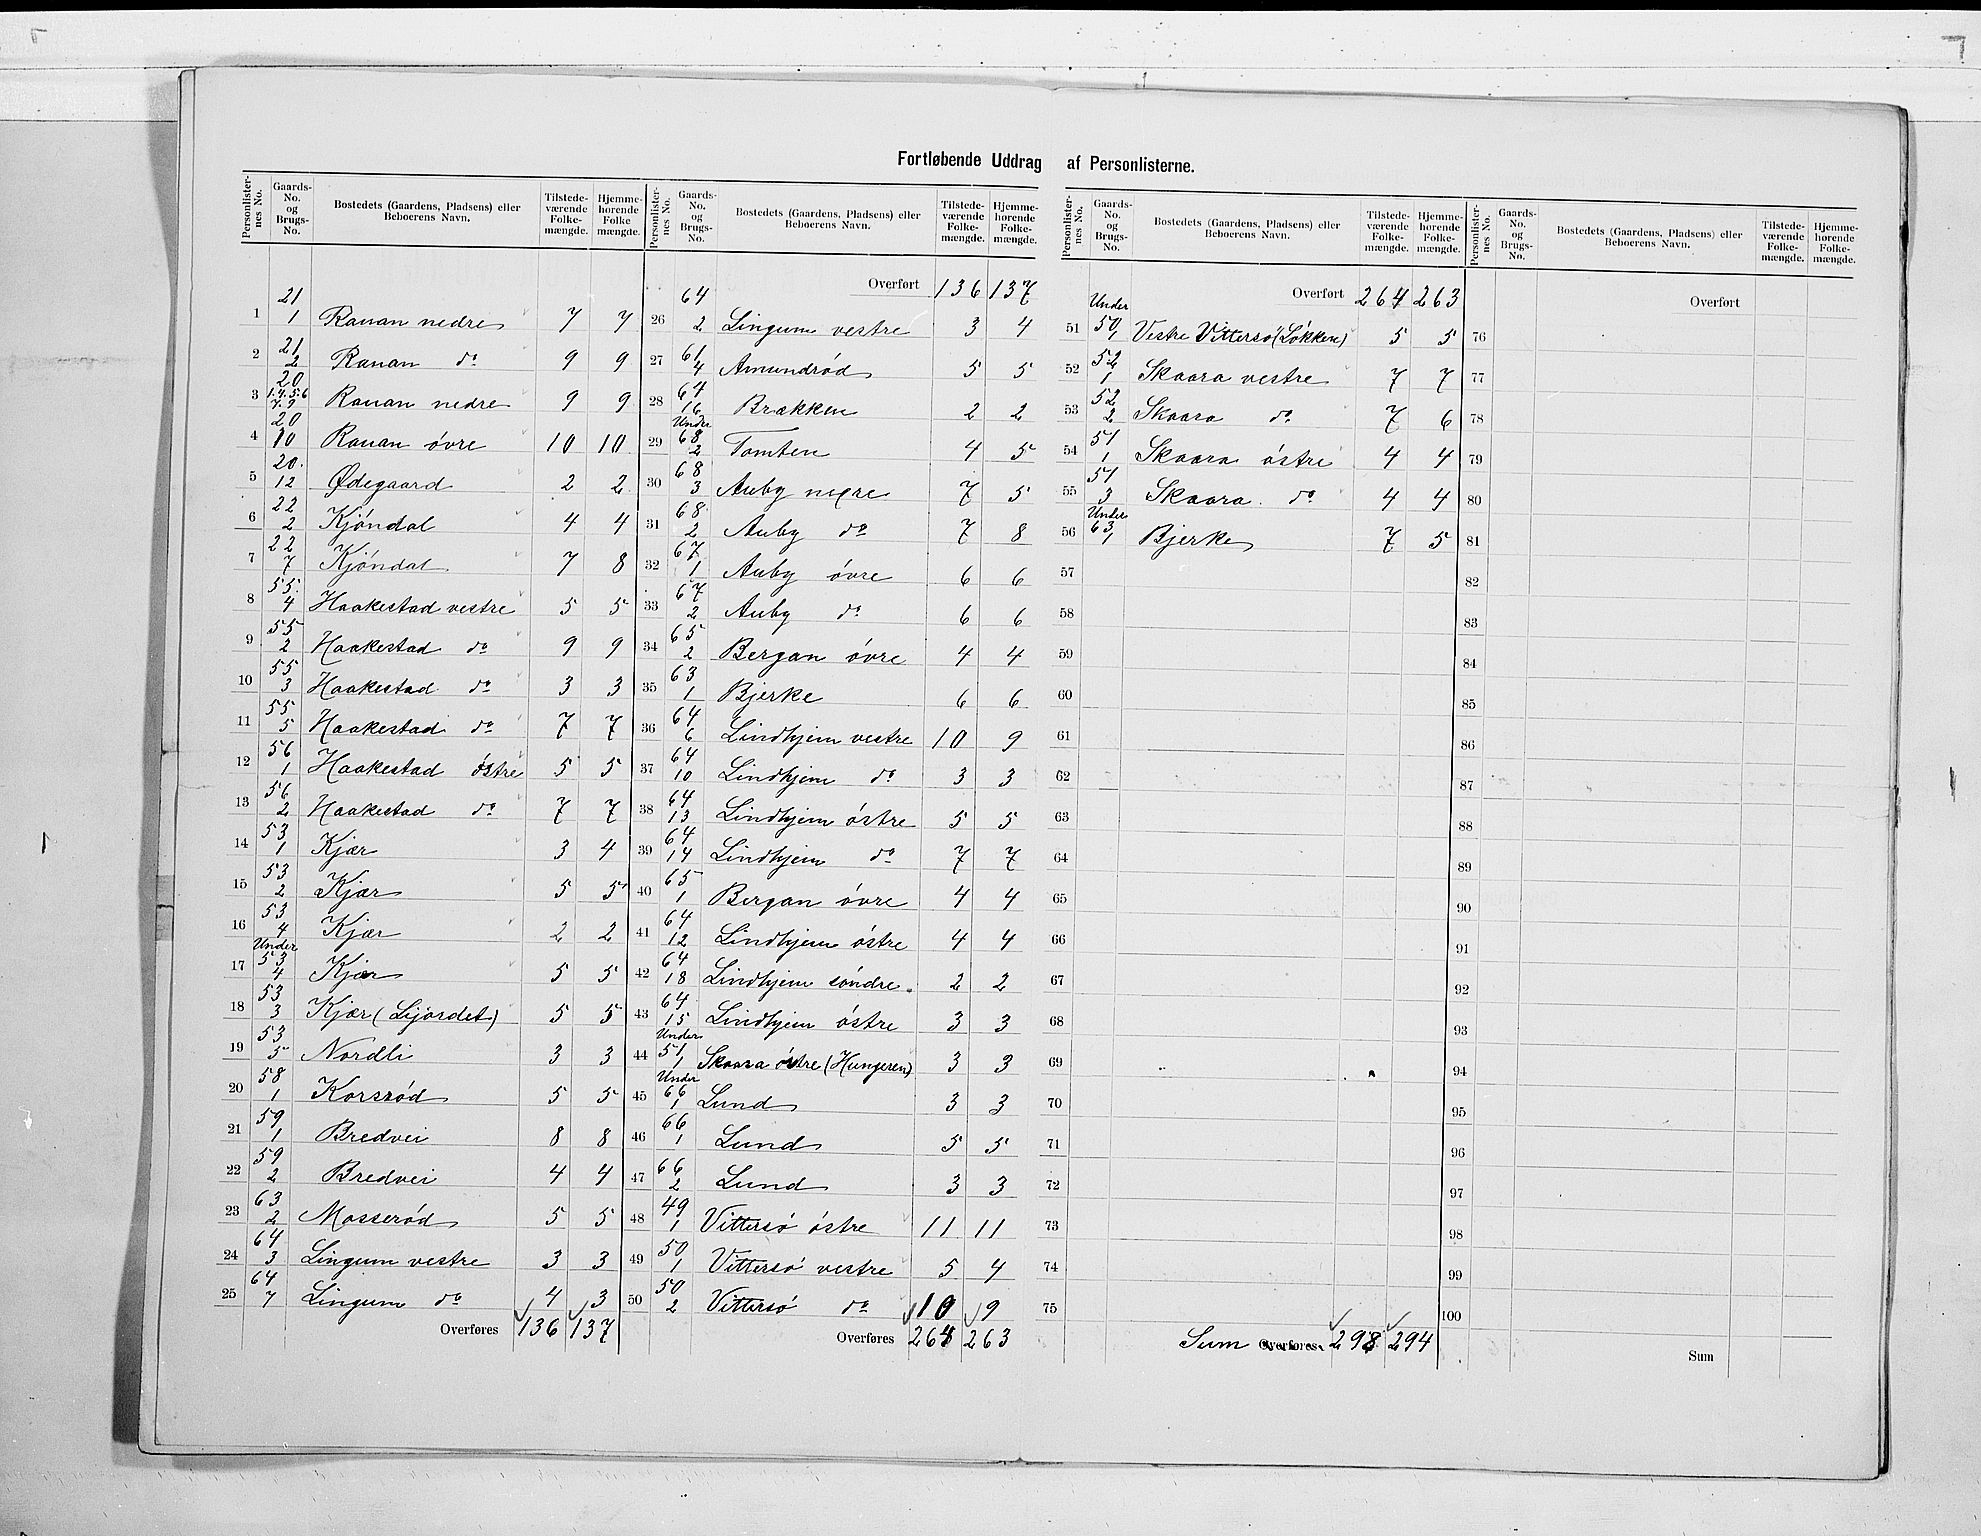 Fortløbende Uddrag af Personlisterne.
Personlisternes No. Gaards-No. og Brugs-No. Bostedets (Gaardens, Pladsens) eller Beboerens Navn. Tilstedeværende Folkemængde. Hjemmehørende Folkemængde.
1 21/1 Rauan nedre 7 7
2 21/2 Rauan do 9 9
3 20/1.4.5.6 7.9 Rauan nedre 9 9
4 20/10 Rauan óvre 10 10
5 20./12 Ødegaard 2 2
6 22/2 Kjóndal 4 4
7 22/7 Kjóndal 7 8
8 55./4 Haakestad vestre 5 5
9 55/2 Haakestad do 9 9
10 55/3 Haakestad do 3 3
11 55/5 Haakestad do 7 7
12 56/1 Haakestad óstre 5 5
13 56/2 Haakestad do 7 7
14 53/1 Kjær 3 4
15 53/2 Kjær 5 5
16 53/4 Kjær 2 2
17 Under 53/4 Kjær 5 5
18 53/3 Kjær (Lijordet) 5 5
19 53/5 Nordli 3 3
20 58/1 Korsród 5 5
21 59/1 Bredvei 8 8
22 59/2 Bredvei 4 4
23 63/2 Mosseród 5 5
24 64/3 Lingum vestre 3 3
25 64/7 Lingum do 4 3
Overføres 136 137
Personlisternes No. Gaards-No. og Brugs-No. Bostedets (Gaardens, Pladsens) eller Beboerens Navn. Tilstedeværende Folkemængde. Hjemmehørende Folkemængde.
Overført 136 137
26 64/2 Lingum vestre 3 4
27 61/4 Amundród 5 5
28 64/16 Brækken 2 2
29 Under 68/2 Tomten 4 5
30 68/3 Auby nedre 7 5
31 68/2 Auby do 7 8
32 67/1 Auby óvre 6 6
33 67/2 Auby do 6 6
34 65/2 Bergan óvre 4 4
35 63/1 Bjerke 6 6
36 64/6 Lindhjem vestre 10 9
37 64/10 Lindhjem do 3 3
38 64/13 Lindhjem óstre 5 5
39 64/14 Lindhjem do 7 7
40 65/1 Bergan óvre 4 4
41 64/12 Lindhjem óstre 4 4
42 64/18 Lindhjem sóndre 2 2
43 64/15 Lindhjem óstre 3 3
44 Under 51/1 Skaara óstre (Hungeren) 3 3
45 Under 66/1 Lund 3 3
46 66/1 Lund 5 5
47 66/2 Lund 3 3
48 49/1 Vittersó óstre 11 11
49 50/1 Vittersó vestre 5 4
50 50/2 Vittersó do 10 9
Overføres 264 263
Personlisternes No. Gaards-No. og Brugs-No. Bostedets (Gaardens, Pladsens) eller Beboerens Navn. Tilstedeværende Folkemængde. Hjemmehørende Folkemængde.
Overført 264 263
51 Under 50/1 Vestre Vittersó (Lókken) 5 5
52 52/1 Skaara vestre 7 7
53 52/2 Skaara do 7 6
54 51/1 Skaara óstre 4 4
55 51/3 Skaara do 4 4
56 Under 63/1 Bjerke 7 5
57
58
59
60
61
62
63
64
65
66
67
68
69
70
71
72
73
74
75
Sum Overføres 298 294
Personlisternes No. Gaards-No. og Brugs-No. Bostedets (Gaardens, Pladsens) eller Beboerens Navn. Tilstedeværende Folkemængde. Hjemmehørende Folkemængde.
Overført
76
77
78
79
80
81
82
83
84
85
86
87
88
89
90
91
92
93
94
95
96
97
98
99
100
Sum